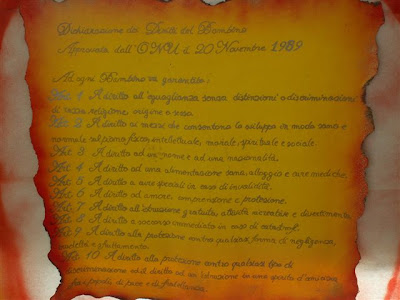 Dichiarazione dei Diritti del Bambino
Approvata dall'ONU il 20 Novembre 1989
Ad ogni Bambino va garantito:
Art. 1 Il diritto all'uguaglianza senza distinzioni o discriminazioni
di razza, religione, origine o sesso.
Art. 2 Il diritto ai mezzi che consentono lo sviluppo in modo sano e
normale sul piano fisico, intellettuale, morale, spirituale e sociale.
Art. 3 Il diritto ad un nome e ad una nazionalità.
Art. 4 Il diritto ad una alimentazione sana, alloggio e cure mediche.
Art. 5 Il diritto a cure speciali in caso di invalidità.
Art. 6 Il diritto ad amore, comprensione e protezione.
Art. 7 Il diritto all'istruzione gratuita, attività ricreative e divertimento.
Art. 8 Il diritto a soccorso immediato in caso di catastrofi.
Art. 9 Il diritto alla protezione contro qualsiasi forma di negligenza,
crudeltà e sfruttamento.
Art. 10 Il diritto alla protezione contro qualsiasi tipo di
discriminazione ed il diritto ad un istruzione in uno spirito d'amicizia
fra i popoli, di pace e di fratellanza.